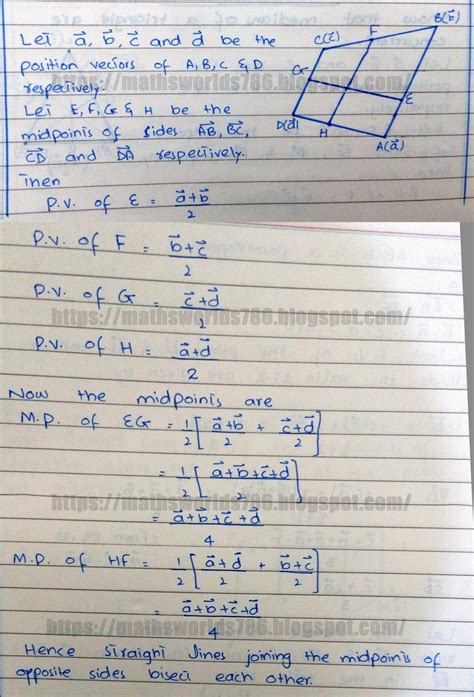 Let a⃗, b⃗, c⃗ and d⃗ be the
position vectors of A, B, C & D
respectively.
Let E, F, G & H be the
midpoints of sides A⃗B, B⃗C,
C⃗D and D⃗A respectively.
Then
P.V. of E = (a⃗+b⃗)/2
B(b⃗)
F
C(c⃗)
G
E
D(d⃗)
H
A(a⃗)
https://mathsworlds786.blogspot.com/
P.V. of F = (b⃗+c⃗)/2
P.V. of G = (c⃗+d⃗)/2
https://mathsworlds786.blogspot.com/
P.V. of H = (a⃗+d⃗)/2
Now the midpoints are
M.P. of EG = 1/2 [ (a⃗+b⃗)/2 + (c⃗+d⃗)/2 ]
= 1/2 [ (a⃗+b⃗+c⃗+d⃗)/2 ]
https://mathsworlds786.blogspot.com/
= (a⃗+b⃗+c⃗+d⃗)/4
M.P. of HF = 1/2 [ (a⃗+d⃗)/2 + (b⃗+c⃗)/2 ]
= (a⃗+b⃗+c⃗+d⃗)/4
https://mathsworlds786.blogspot.com/
Hence straight lines joining the midpoints of
opposite sides bisect each other.